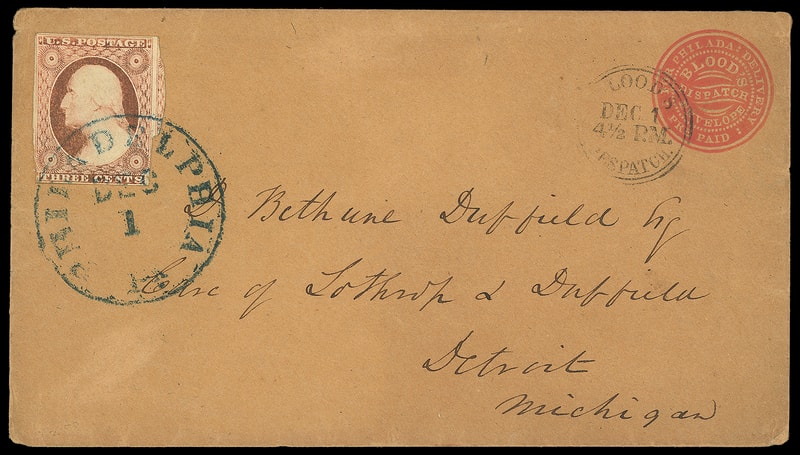 U.S. POSTAGE
THREE CENTS
PHILADELPHIA
DEC
1
LOOD'S
DEC. 1
4½ P.M.
ESPATCH.
PHILADA. DELIVERY
BLOOD'S
DISPATCH
ENVELOPE
PRE PAID
D. Bethune Duffield Esq
Care of Lothrop & Duffield
Detroit
Michigan